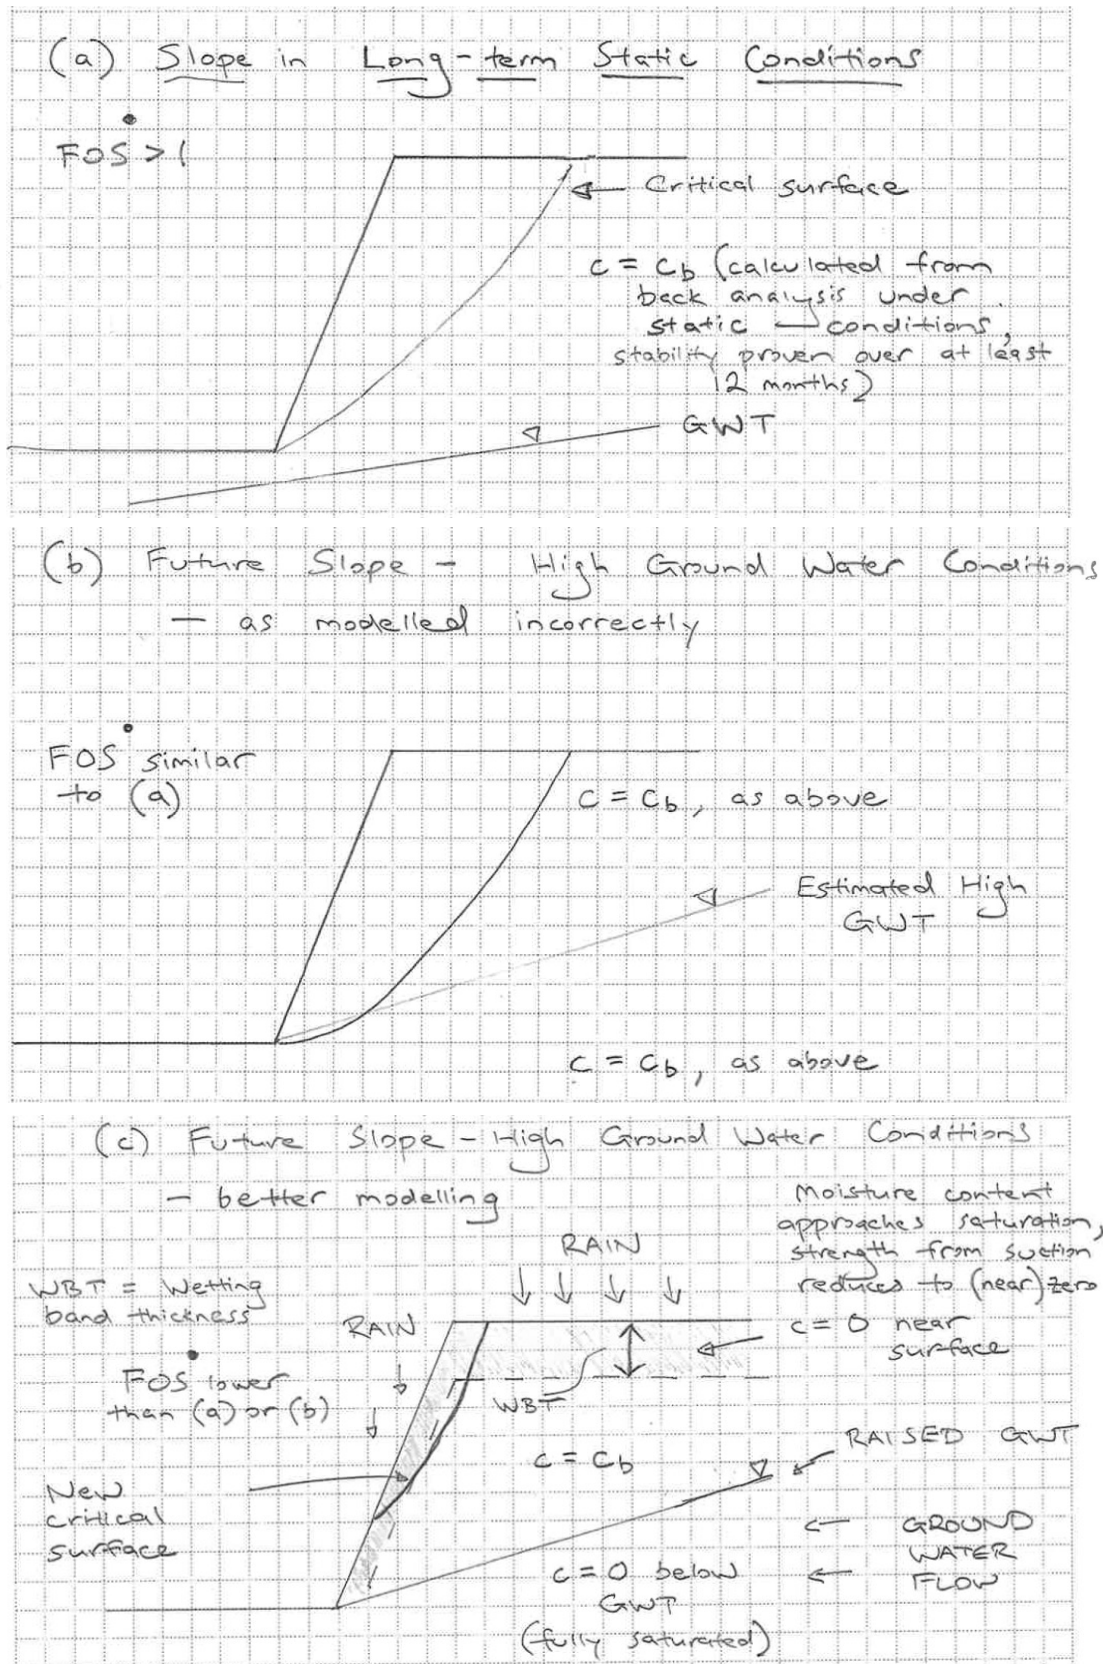 (a) Slope in Long-term Static Conditions
FOS > 1
Critical surface
c = cb (calculated from
back analysis under
static conditions,
stability proven over at least
12 months)
GWT
(b) Future Slope - High Ground Water Conditions
- as modelled incorrectly
FOS similar
to (a)
c = cb, as above
Estimated High
GWT
c = cb, as above
(c) Future Slope - High Ground Water Conditions
- better modelling
Moisture content
approaches saturation,
strength from suction
reduces to (near) zero
RAIN
WBT = Wetting
band thickness
RAIN
c = 0 near
surface
FOS lower
than (a) or (b)
WBT
RAISED GWT
c = cb
New
critical
surface
GROUND
WATER
FLOW
c = 0 below
GWT
(fully saturated)